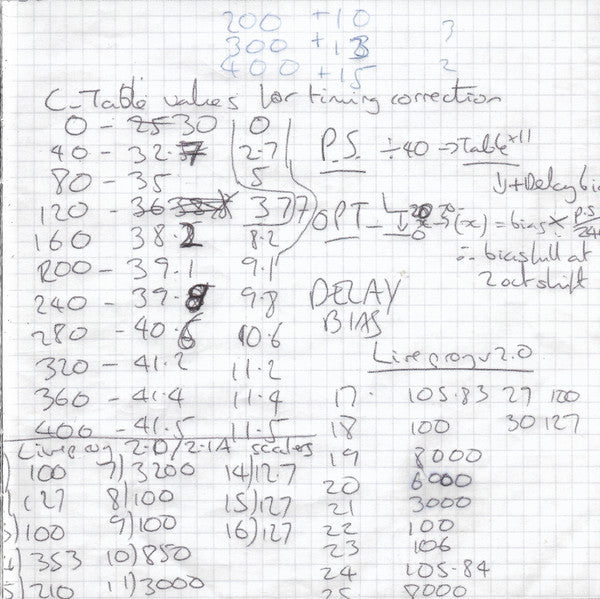 200 +10 3
300 +13
400 +15 2
C-Table values for timing correction
0 - 30 0
40 - 32.7 2.7
80 - 35 5
120 - 377
160 38.2 8.2
200 - 39.1 9.1
240 - 39.8 9.8
280 - 40.6 10.6
320 - 41.2 11.2
360 - 41.4 11.4
400 - 41.5 11.5
P.S. ÷40 → Table
+Delay bia
OPT (x) = bias x P.S
∴ bias full at
2 oct shift
DELAY
BIAS
Liveprog v2.0
17. 105.83 27 100
18 100 30 127
19 8000
20 6000
21 3000
22 100
23 106
24 105.84
25 8000
Liveprog 2.0/2.1A scales
) 100 7) 3200 14) 12.7
127 8) 100 15) 127
) 100 9) 100 16) 127
) 353 10) 850
) 210 11) 3000